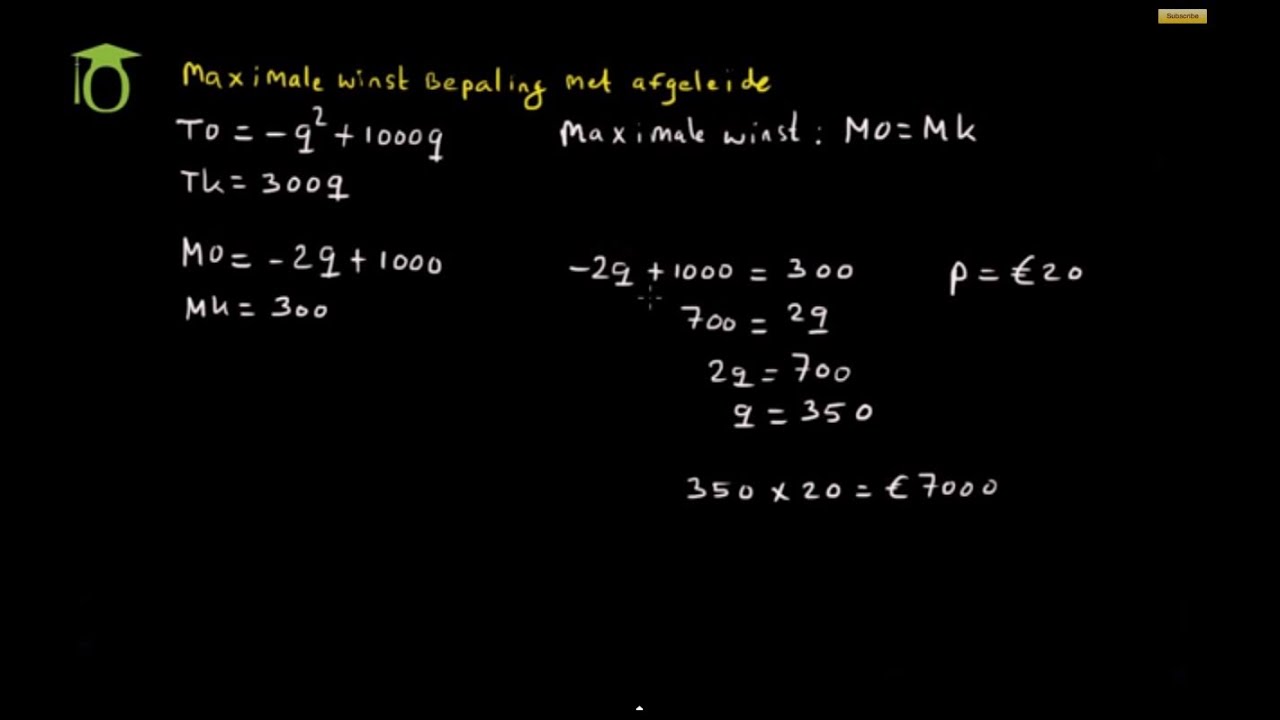 Subscribe
Maximale winst Bepaling met afgeleide
TO = -q² + 1000q
Tk = 300q
Maximale winst : MO = Mk
MO = -2q + 1000
Mk = 300
-2q + 1000 = 300
700 = 2q
2q = 700
q = 350
p = €20
350 x 20 = €7000